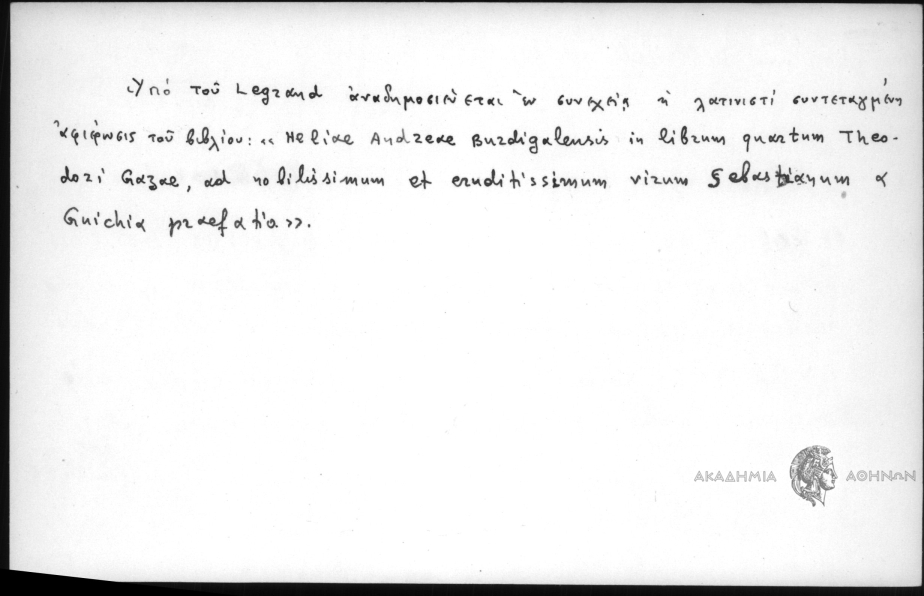 Ὑπό τοῦ Legrand ἀναδημοσιεύεται ἐν συνεχείᾳ ἡ λατινιστί συντεταγμένη
ἀφιέρωσις τοῦ βιβλίου: «Heliae Andreae Burdigalensis in librum quartum Theo-
dori Gazae, ad nobilissimum et eruditissimum virum Sebastianum a
Guichia praefatio».
ΑΚΑΔΗΜΙΑ ΑΘΗΝΩΝ